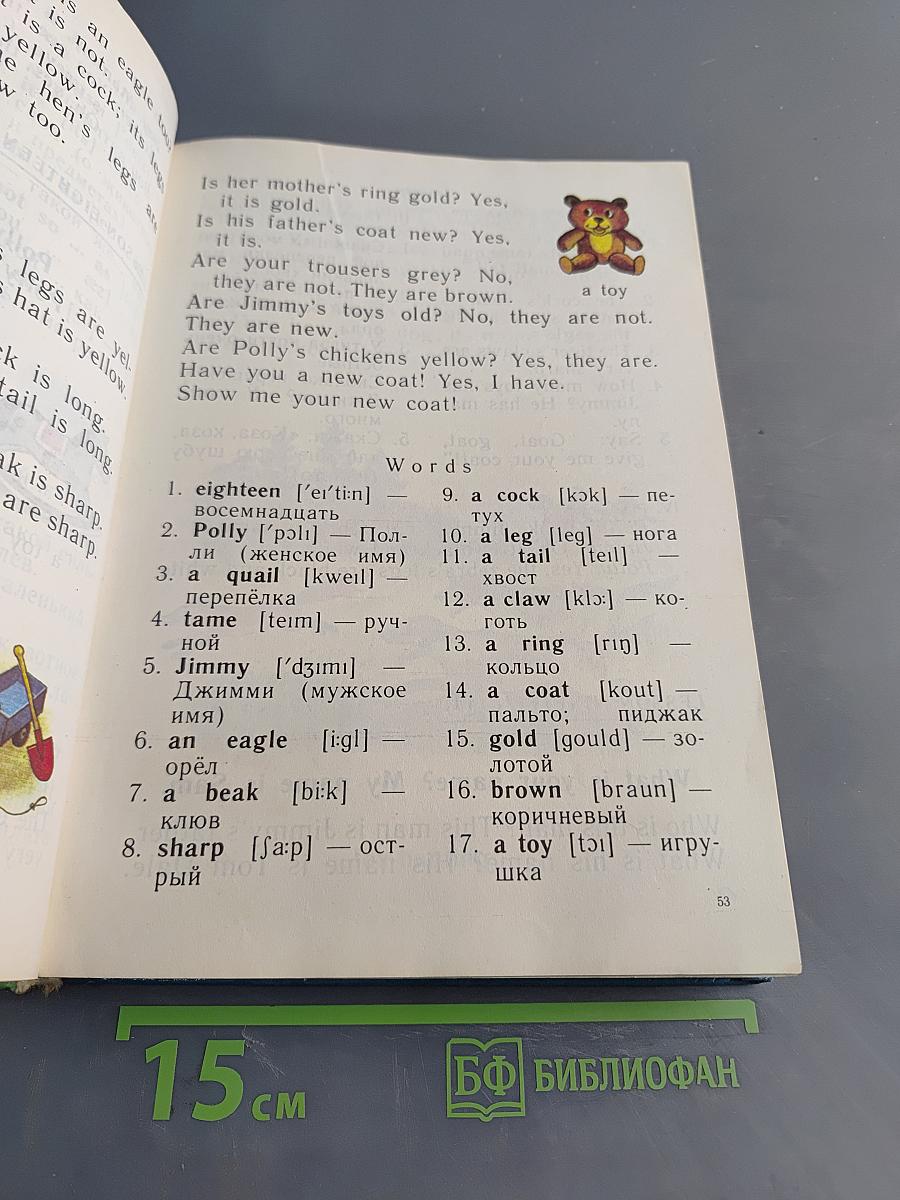 is an eagle too;
it is not.
is a cock; its legs
yellow.
hen's legs are
too.
legs are yel-
hat is yellow.
is long.
tail is long.
is sharp.
are sharp.
Is her mother's ring gold? Yes,
it is gold.
Is his father's coat new? Yes,
it is.
Are your trousers grey? No,
they are not. They are brown.
a toy
Are Jimmy's toys old? No, they are not.
They are new.
Are Polly's chickens yellow? Yes, they are.
Have you a new coat! Yes, I have.
Show me your new coat!
Words
1. eighteen [ˈeıˈti:n] —
восемнадцать
2. Polly [ˈpɔlı] — Пол-
ли (женское имя)
3. a quail [kweıl] —
перепёлка
4. tame [teım] — руч-
ной
5. Jimmy [ˈdʒımı] —
Джимми (мужское
имя)
6. an eagle [i:gl] —
орёл
7. a beak [bi:k] —
клюв
8. sharp [ʃa:p] — ост-
рый
9. a cock [kɔk] — пе-
тух
10. a leg [leg] — нога
11. a tail [teıl] —
хвост
12. a claw [klɔ:] — ко-
готь
13. a ring [rıŋ] —
кольцо
14. a coat [kout] —
пальто; пиджак
15. gold [gould] — зо-
лотой
16. brown [braun] —
коричневый
17. a toy [tɔı] — игру-
шка
53
15 см
БФ БИБЛИОФАН